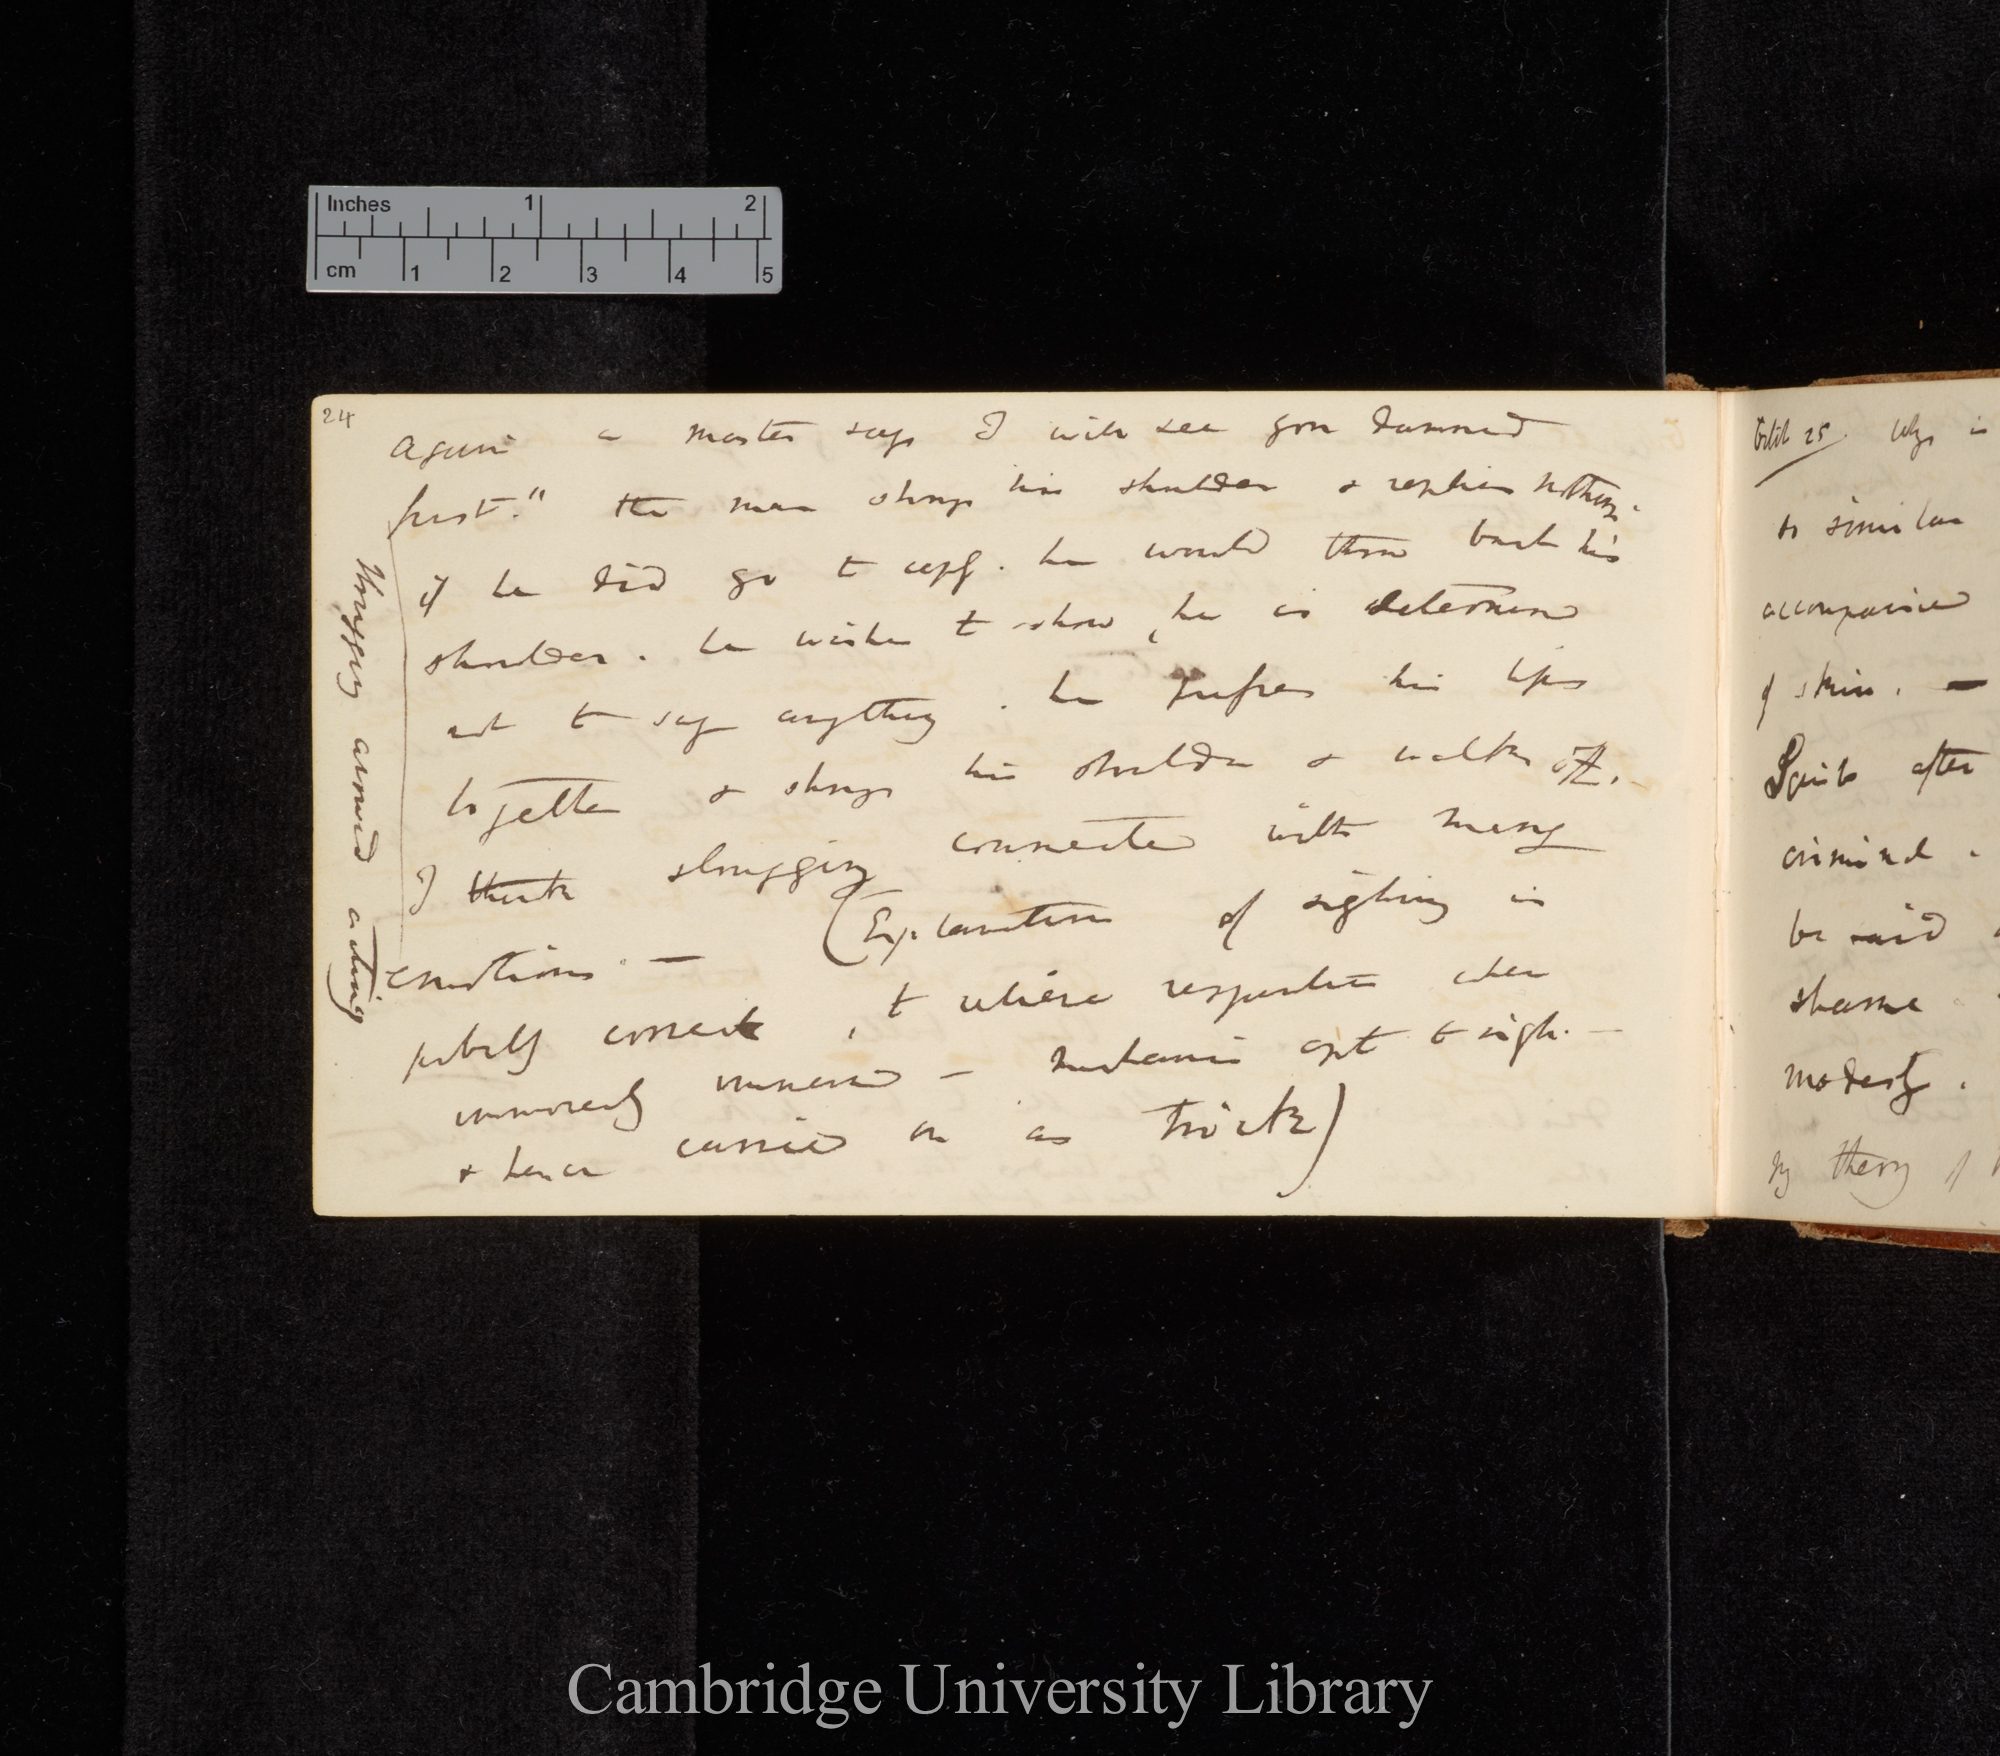 Inches 1 2
cm 1 2 3 4 5
24
Again a master says I will see you damned
first." the man shrugs his shoulder & replies nothing.
if he did go to reply. he would throw back his
shoulder. he wishes to show, he is determined
not to say anything. he presses his lips
together & shrugs his shoulder & walks off. —
I think shrugging connected with many
emotions. — (Explanation of sighing is
probably correct, to relieve respiration when
immoveable — mechanics apt to sigh. —
& hence carried on as trick)
Shrugging around acting
Octob 25. Why is
so similar
accompanied
of skin. —
Squib after
criminal.
be said
shame
modesty.
My theory of
Cambridge University Library